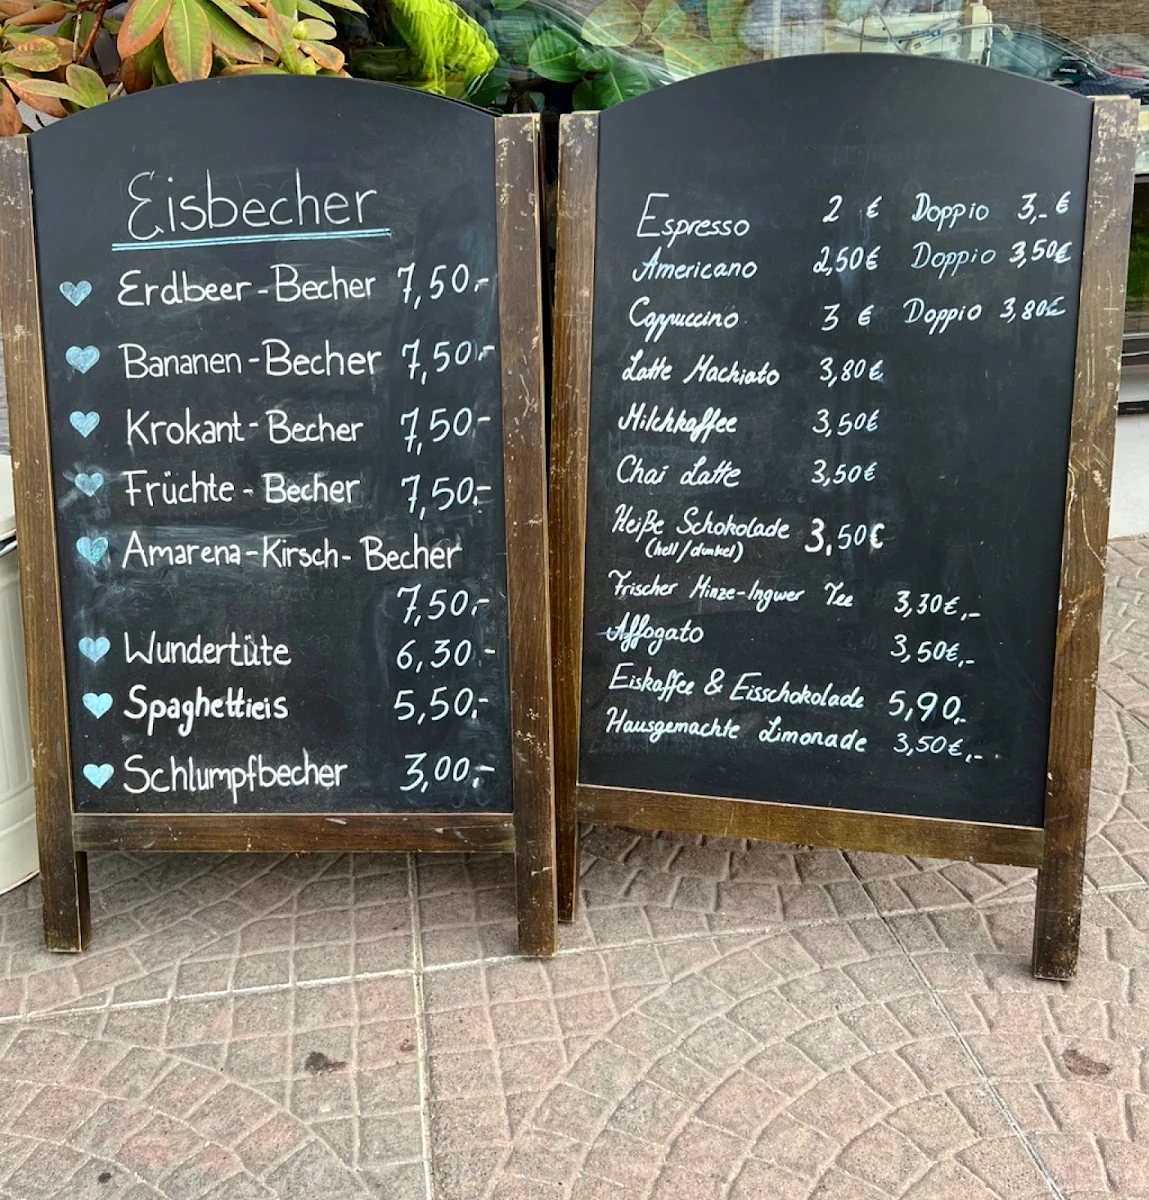 Eisbecher
Erdbeer-Becher 7,50,-
Bananen-Becher 7,50,-
Krokant-Becher 7,50,-
Früchte-Becher 7,50,-
Amarena-Kirsch-Becher
7,50,-
Wundertüte 6,30,-
Spaghettieis 5,50,-
Schlumpfbecher 3,00,-
Espresso 2 € Doppio 3,- €
Americano 2,50€ Doppio 3,50€
Cappuccino 3 € Doppio 3,80€
Latte Machiato 3,80€
Milchkaffee 3,50€
Chai Latte 3,50€
Heiße Schokolade 3,50€
(hell/dunkel)
Frischer Minze-Ingwer Tee 3,30€,-
Affogato 3,50€,-
Eiskaffee & Eisschokolade 5,90,-
Hausgemachte Limonade 3,50€,-